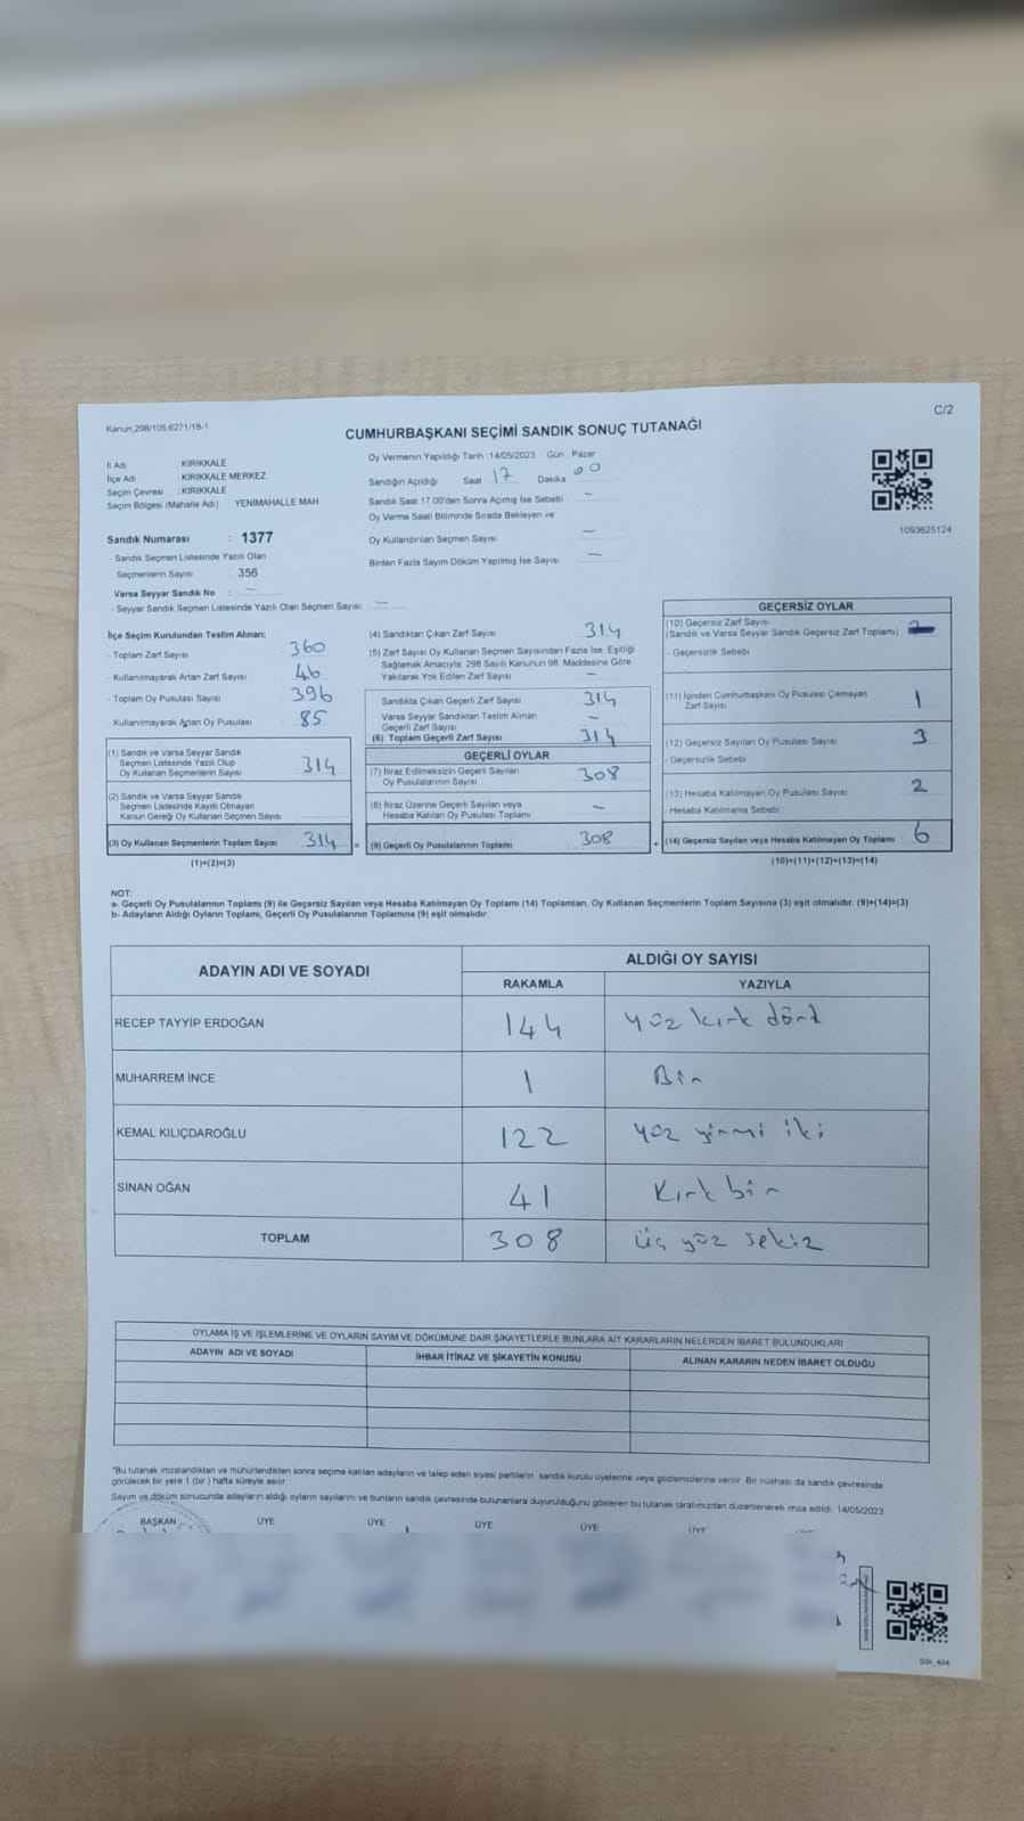 Kanun 298/105.6271/18-1
C/2
CUMHURBAŞKANI SEÇİMİ SANDIK SONUÇ TUTANAĞI
İl Adı KIRIKKALE
İlçe Adı KIRIKKALE MERKEZ
Seçim Çevresi : KIRIKKALE
Seçim Bölgesi (Mahalle Adı) YENİMAHALLE MAH
Sandık Numarası : 1377
- Sandık Seçmen Listesinde Yazılı Olan
Seçmenlerin Sayısı 356
Varsa Seyyar Sandık No : —
- Seyyar Sandık Seçmen Listesinde Yazılı Olan Seçmen Sayısı —
Oy Vermenin Yapıldığı Tarih :14/05/2023 Gün Pazar
Sandığın Açıldığı Saat 17 Dakika 00
Sandık Saat 17.00'den Sonra Açılmış İse Sebebi —
Oy Verme Saati Bitiminde Sırada Bekleyen ve
Oy Kullandırılan Seçmen Sayısı —
Birden Fazla Sayım Döküm Yapılmış İse Sayısı —
1093625124
İlçe Seçim Kurulundan Teslim Alınan:
- Toplam Zarf Sayısı 360
- Kullanılmayarak Artan Zarf Sayısı 46
- Toplam Oy Pusulası Sayısı 396
- Kullanılmayarak Artan Oy Pusulası 85
(1) Sandık ve Varsa Seyyar Sandık
Seçmen Listesinde Yazılı Olup
Oy Kullanan Seçmenlerin Sayısı 314
(2) Sandık ve Varsa Seyyar Sandık
Seçmen Listesinde Kayıtlı Olmayan
Kanun Gereği Oy Kullanan Seçmen Sayısı
(3) Oy Kullanan Seçmenlerin Toplam Sayısı 314
(1)+(2)=(3)
(4) Sandıktan Çıkan Zarf Sayısı 314
(5) Zarf Sayısı Oy Kullanan Seçmen Sayısından Fazla İse, Eşitliği
Sağlamak Amacıyla 298 Sayılı Kanunun 98. Maddesine Göre
Yakılarak Yok Edilen Zarf Sayısı —
Sandıkta Çıkan Geçerli Zarf Sayısı 314
Varsa Seyyar Sandıktan Teslim Alınan
Geçerli Zarf Sayısı —
(6) Toplam Geçerli Zarf Sayısı 314
GEÇERLİ OYLAR
(7) İtiraz Edilmeksizin Geçerli Sayılan
Oy Pusulalarının Sayısı 308
(8) İtiraz Üzerine Geçerli Sayılan veya
Hesaba Katılan Oy Pusulası Toplamı —
= (9) Geçerli Oy Pusulalarının Toplamı 308
GEÇERSİZ OYLAR
(10) Geçersiz Zarf Sayısı
(Sandık ve Varsa Seyyar Sandık Geçersiz Zarf Toplamı)
- Geçersizlik Sebebi
(11) İçinden Cumhurbaşkanı Oy Pusulası Çıkmayan
Zarf Sayısı 1
(12) Geçersiz Sayılan Oy Pusulası Sayısı 3
- Geçersizlik Sebebi
(13) Hesaba Katılmayan Oy Pusulası Sayısı 2
- Hesaba Katılmama Sebebi
+ (14) Geçersiz Sayılan veya Hesaba Katılmayan Oy Toplamı 6
(10)+(11)+(12)+(13)=(14)
NOT:
a- Geçerli Oy Pusulalarının Toplamı (9) ile Geçersiz Sayılan veya Hesaba Katılmayan Oy Toplamı (14) Toplamları, Oy Kullanan Seçmenlerin Toplam Sayısına (3) eşit olmalıdır. (9)+(14)=(3)
b- Adayların Aldığı Oyların Toplamı, Geçerli Oy Pusulalarının Toplamına (9) eşit olmalıdır.
ADAYIN ADI VE SOYADI
ALDIĞI OY SAYISI
RAKAMLA YAZIYLA
RECEP TAYYİP ERDOĞAN 144 yüz kırk dört
MUHARREM İNCE 1 Bir
KEMAL KILIÇDAROĞLU 122 yüz yirmi iki
SİNAN OĞAN 41 Kırk bir
TOPLAM 308 üç yüz sekiz
OYLAMA İŞ VE İŞLEMLERİNE VE OYLARIN SAYIM VE DÖKÜMÜNE DAİR ŞİKAYETLERLE BUNLARA AİT KARARLARIN NELERDEN İBARET BULUNDUKLARI
ADAYIN ADI VE SOYADI İHBAR İTİRAZ VE ŞİKAYETİN KONUSU ALINAN KARARIN NEDEN İBARET OLDUĞU
"Bu tutanak imzalandıktan ve mühürlendikten sonra seçime katılan adayların ve talep eden siyasi partilerin sandık kurulu üyelerine veya gözlemcilerine verilir. Bir nüshası da sandık çevresinde
görülecek bir yere 1 (bir) hafta süreyle asılır.
Sayım ve döküm sonucunda adayların aldığı oyların sayılarını ve bunların sandık çevresinde bulunanlara duyurulduğunu gösteren bu tutanak tarafımızdan düzenlenerek imza edildi. 14/05/2023
BAŞKAN ÜYE ÜYE ÜYE ÜYE ÜYE